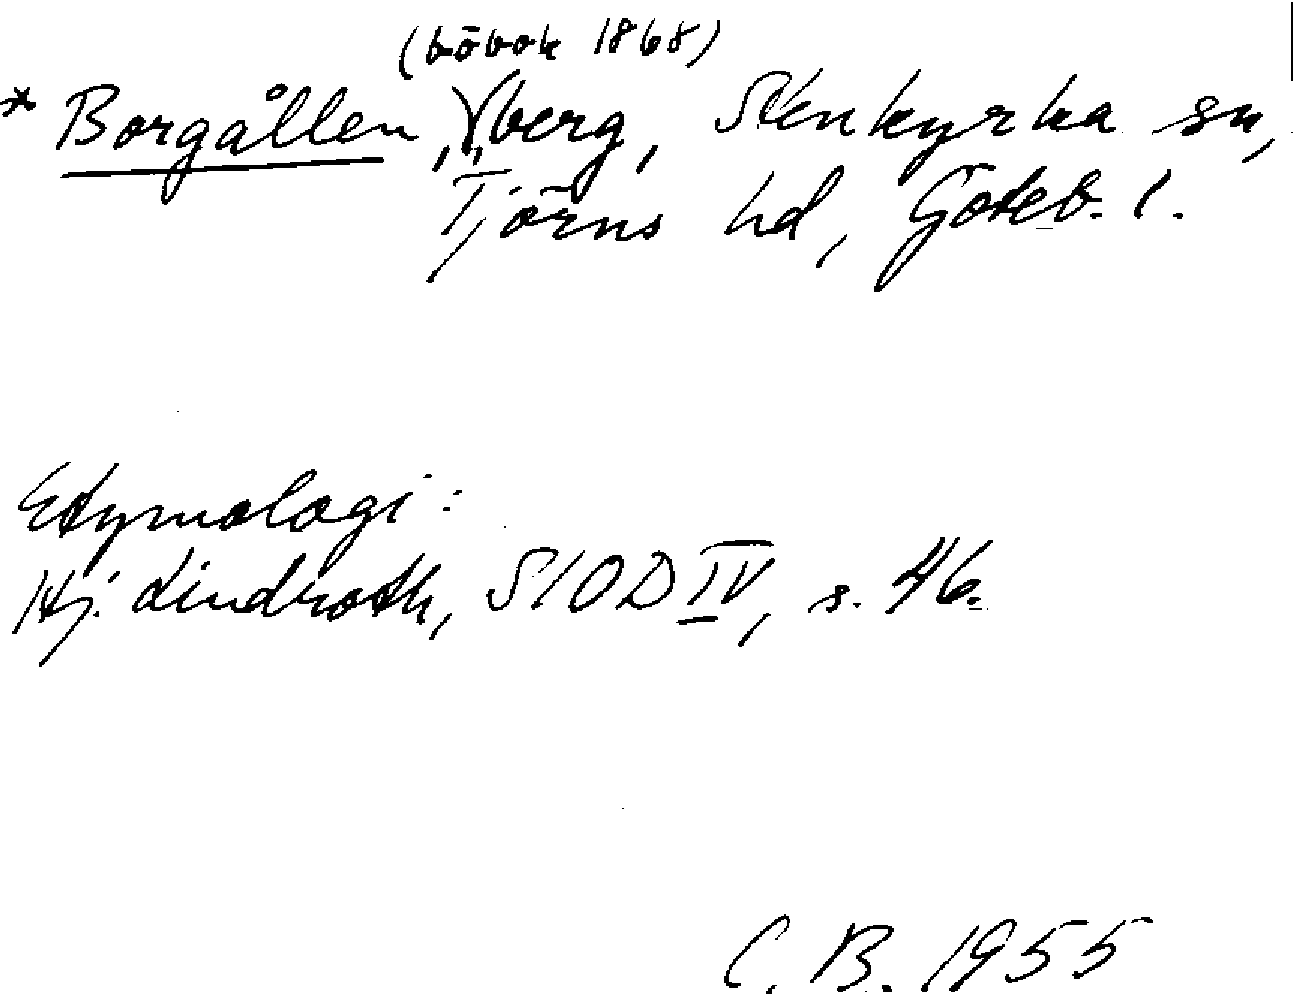 (bōbok 1868)
* Borgållen, berg, Stenkyrka sn,
Tjörns hd, Göteb. l.
Etymologi:
Hj. Lindroth, SIOD IV, s. 46.
C. B. 1955